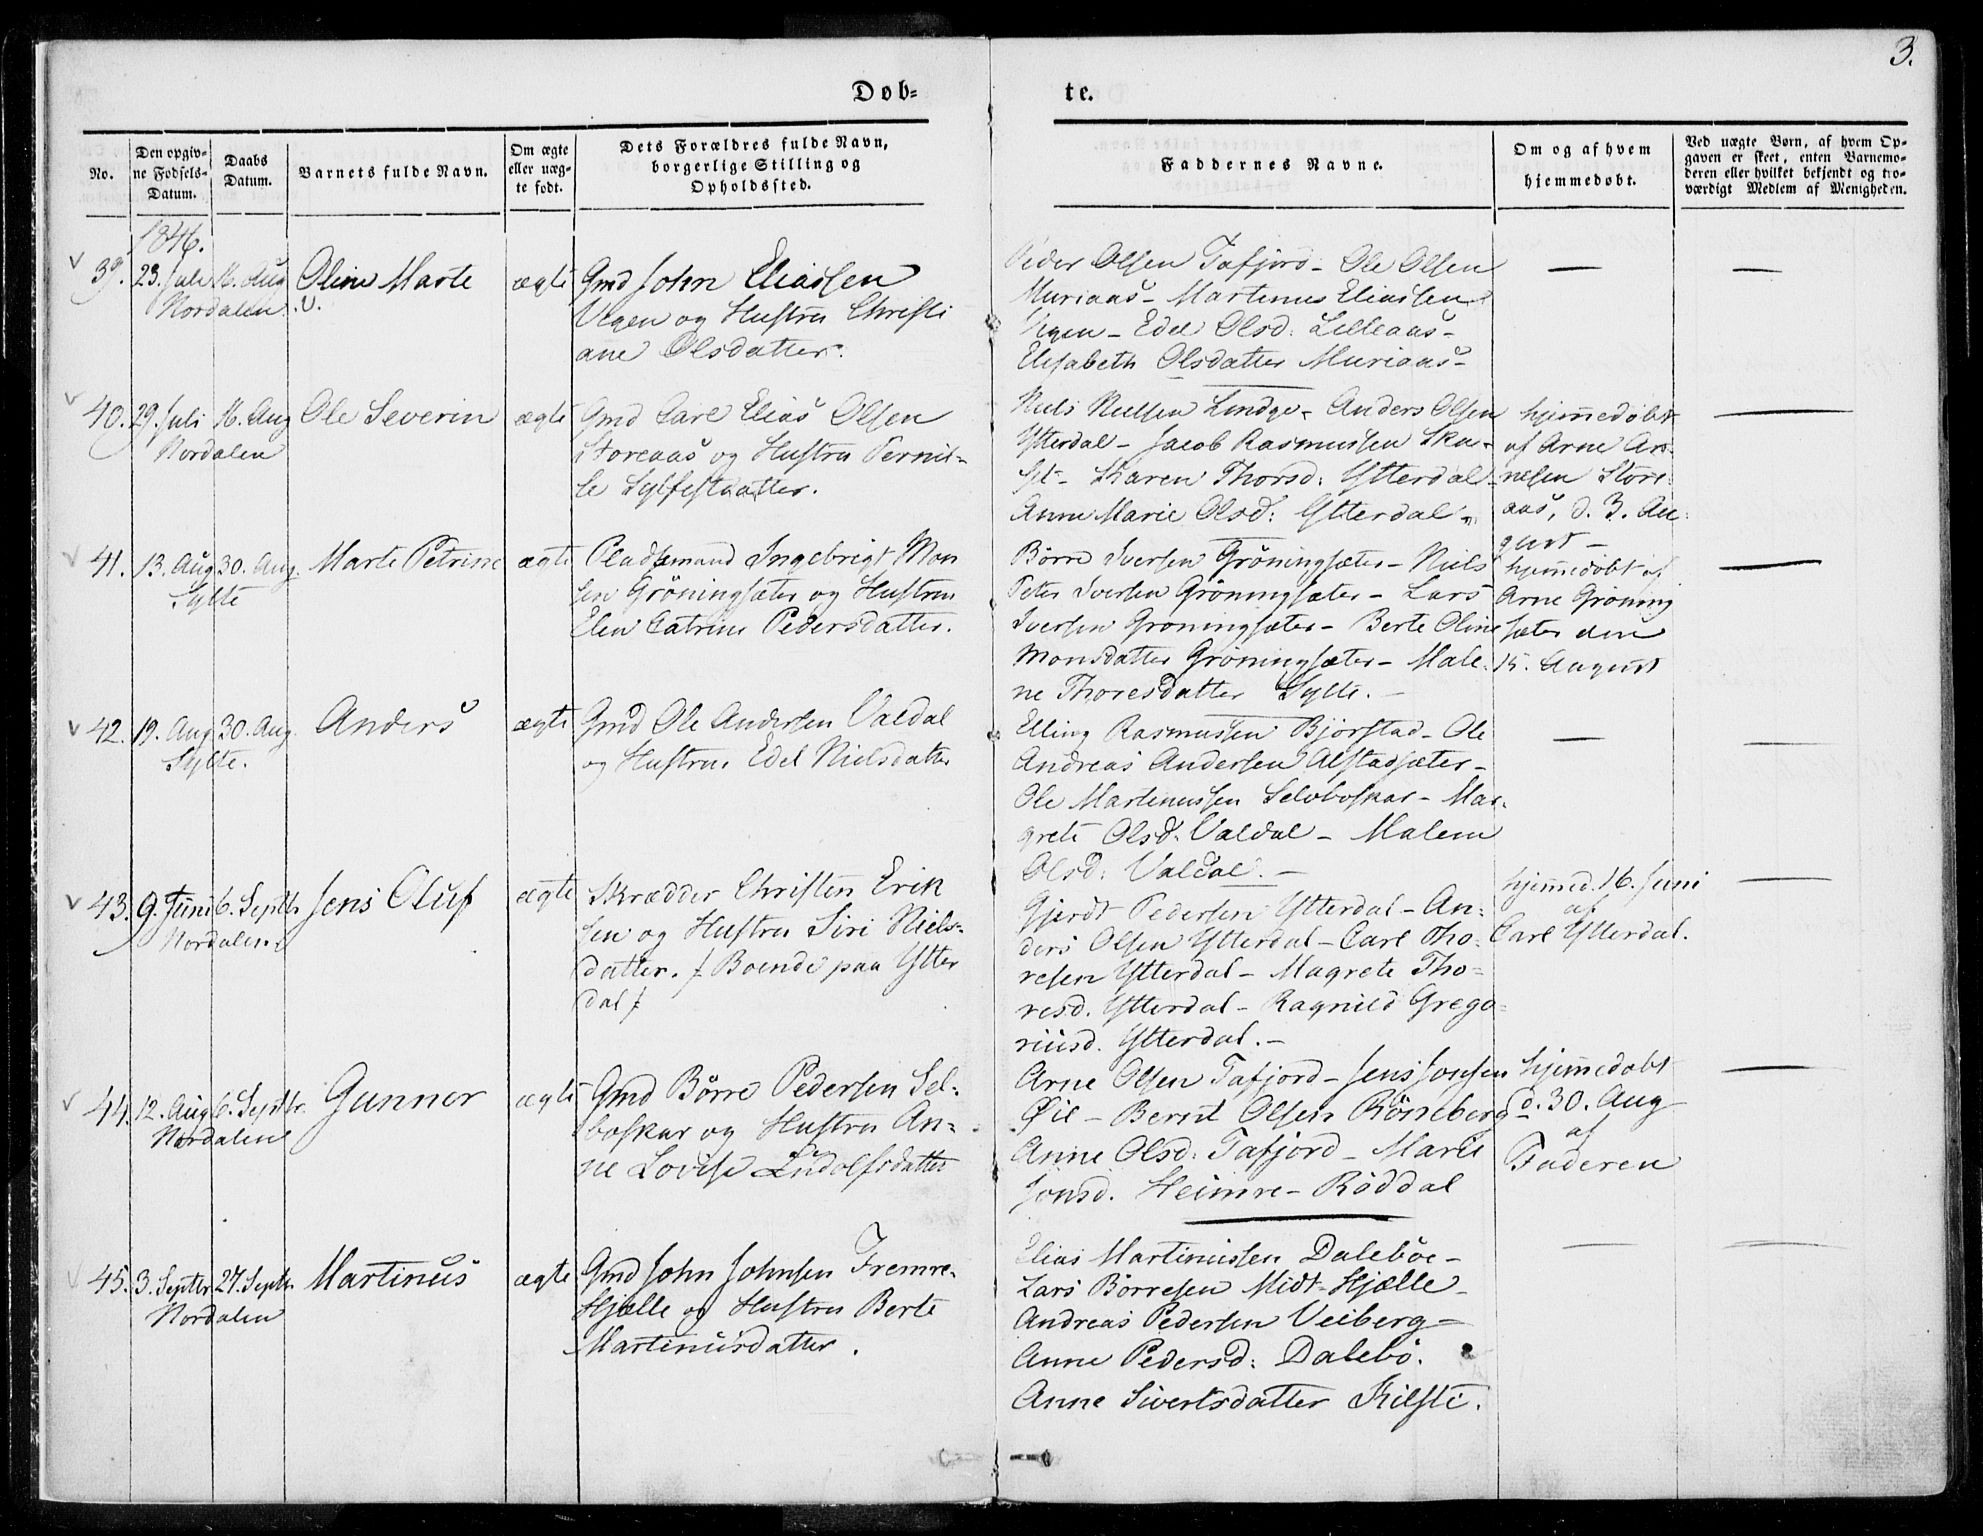 3.
Døb-
te.
No.
Den opgiv-
ne Fødsels-
Datum.
Daabs
Datum.
Barnets fulde Navn.
Om ægte
eller uæg-
te født.
Dets Forældres fulde Navn,
borgerlige Stilling og
Opholdssted.
Faddernes Navne.
Om og af hvem
hjemmedøbt.
Ved uægte Børn, af hvem Op-
gaven er skeet, enten Barnemo-
deren eller hvilket bekjendt og tro-
værdigt Medlem af Menigheden.
1846.
39. 23. Juli 16. Aug
Nordalen
Oline Marte
v.
ægte
Gmd John Eliassen
Uegen og Hustru Christi
ane Olsdatter.
Peder Olsen Tafjord - Ole Olsen
Muriaas - Martinus Eliassen
Uegen - Edel Olsd: Lilleaas -
Elisabeth Olsdatter Muriaas -
—
—
40. 29. Juli 16. Aug
Nordalen
Ole Severin
ægte
Gmd Carl Elias Olsen
Storeaas og Hustru Pernil-
le Sylfestdatter.
Niels Nielsen Linge - Anders Olsen
Ytterdal - Jacob Rasmussen Ska-
set - Karen Thorsd: Ytterdal -
Anne Marie Olsd: Ytterdal -
hjemmedøbt
af Arne Ar-
nesen Store-
aas, d. 3. Au-
gust -
—
41. 13. Aug 30. Aug.
Sylte
Marte Petrine
ægte
Pladsmand Ingebrigt Mon
sen Grøningsæter og Hustru
Elen Catrine Pedersdatter.
Børre Iversen Grøningsæter - Niels
Peter Iversen Grøningsæter - Lars
Iversen Grøningsæter - Berte Oline
Monsdatter Grøningsæter - Male-
ne Thoresdatter Sylte. -
hjemmedøbt af
Arne Grøning
sæter den
15. August
—
42. 19. Aug 30. Aug.
Sylte.
Anders
ægte
Gmd Ole Andersen Valdal
og Hustru Edel Nielsdatter
Elling Rasmussen Bjørstad - Ole
Andreas Andersen Alstadsæter -
Ole Martinussen Selboskar - Mar-
grete Olsd. Valdal - Malene
Olsd: Valdal. -
—
—
43. 9. Juni 6. Septbr
Nordalen
Jens Oluf
ægte
Skrædder Christen Erik
sen og Hustru Siri Niels-
datter. / Boende paa Ytter
dal /
Gjerdt Pedersen Ytterdal - An-
ders Olsen Ytterdal - Carl Tho-
resen Ytterdal - Magrete Tho-
resd. Ytterdal - Ragnild Grego-
riusd. Ytterdal. -
hjemmed. 16. Juni
af
Carl Ytterdal.
—
44. 12. Aug 6. Septbr.
Nordalen
Gunner
ægte
Gmd Børre Pedersen Sel-
boskar og Hustru An-
ne Lovise Ludolfsdatter
Arne Olsen Tafjord - Jens Jonsen
Øie - Bernt Olsen Rønneberg
Anne Olsd: Tafjord - Marie
Jonsd. Heimre - Røddal
hjemmedøbt
d. 30. Aug
af
Faderen
—
45. 3. Septbr 27. Septbr.
Nordalen
Martinus
ægte
Gmd John Johnsen Fremre-
Hjælle og Hustru Berte
Martinusdatter.
Elias Martinussen Dalebøe -
Lars Børresen Midt-Hjælle -
Andreas Pedersen Veiberg -
Anne Pedersd: Dalebø.
Anne Sivertsdatter Kilsti.
—
—